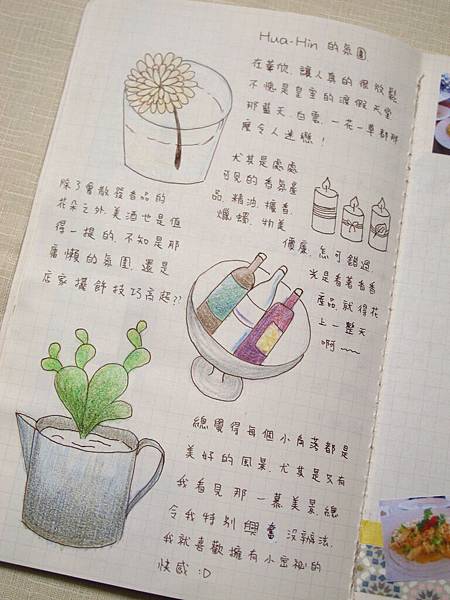 Hua-Hin 的氛圍
在華欣,讓人真的很放鬆
不愧是皇室的渡假天堂
那藍天、白雲、一花一草都那
麼令人迷戀!
尤其是處處
可見的香氛產
品,精油,擴香,
蠟燭,物美
價廉,怎可錯過
光是看著香香
產品,就得花
上一整天
啊~~~
除了會散發香品的
花朵之外,美酒也是值
得一提的,不知是那
慵懶的氛圍,還是
店家擺飾技巧高超??
總覺得每個小角落都是
美好的風景,尤其是只有
我看見那一幕美景總
令我特別興奮,沒辦法,
我就喜歡擁有小密祕的
快感 :D